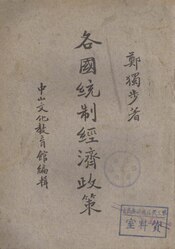 鄭獨步著
各國統制經濟政策
中山文化教育館編輯
資料室